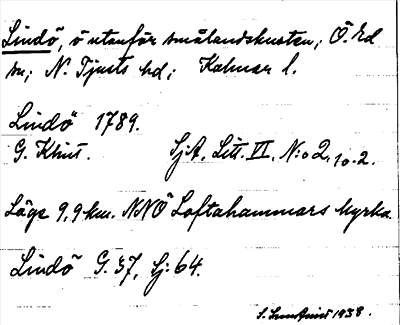 Lindö, ö utanför smålandskusten; Ö. Ed
sn; N. Tjusts hd; Kalmar l.
Lindö 1789.
G. Klint. SjA, Litt. VI, N:o 2, 1 o. 2.
Läge 9,9 km. NNÖ Loftahammars kyrka.
Lindö G. 37, Sj: 64.
1938.